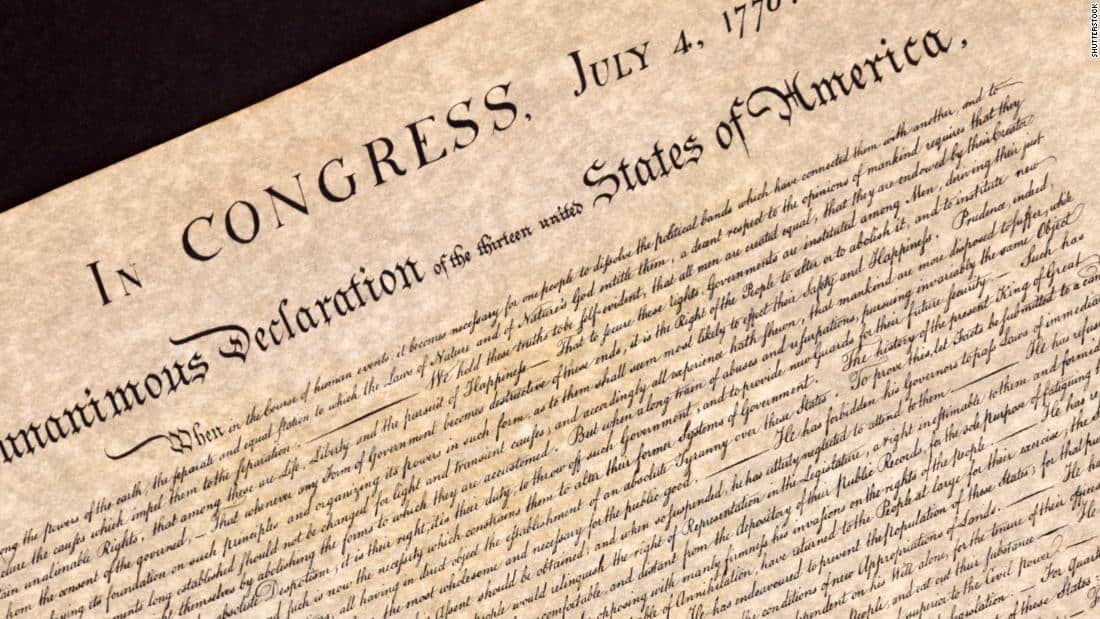 IN CONGRESS, JULY 4, 1776.
unanimous Declaration of the thirteen united States of America,
When in the Course of human events, it becomes necessary for one people to dissolve the political bands which have connected them with another, and to
ong the powers of the earth, the separate and equal station to which the Laws of Nature and of Nature's God entitle them, a decent respect to the opinions of mankind requires that they
lare the causes which impel them to the separation. — We hold these truths to be self-evident, that all men are created equal, that they are endowed by their Creator
tain unalienable Rights, that among these are Life, Liberty and the pursuit of Happiness — That to secure these rights, Governments are instituted among Men, deriving their just
from the consent of the governed, — That whenever any Form of Government becomes destructive of these ends, it is the Right of the People to alter or to abolish it, and to institute new
laying its foundation on such principles and organizing its powers in such form, as to them shall seem most likely to effect their Safety and Happiness. Prudence, indeed,
ments long established should not be changed for light and transient causes; and accordingly all experience hath shewn, that mankind are more disposed to suffer, while
themselves by abolishing the forms to which they are accustomed. But when a long train of abuses and usurpations, pursuing invariably the same Object
absolute Despotism, it is their right, it is their duty, to throw off such Government, and to provide new Guards for their future security. — Such has
such is now the necessity which constrains them to alter their former Systems of Government. The history of the present King of Great
all having in direct object the establishment of an absolute Tyranny over these States. To prove this, let Facts be submitted to a can
the most wholesome and necessary for the public good. — He has forbidden his Governors to pass Laws of immediate
Assent should be obtained; and when so suspended, he has utterly neglected to attend to them. — He has refus
people would relinquish the right of Representation in the Legislature, a right inestimable to them and formid
comfortable, and distant from the depository of their public Records, for the sole purpose of fatiguing
opposing with manly firmness his invasions on the rights of the people. — He has re
able of Annihilation, have returned to the People at large for their exercise; the
He has endeavoured to prevent the population of these States; for that purp
the conditions of new Appropriations of Lands. — He ha
dependent on his Will alone, for the tenure of their
People, and eat out their substance. — He
superior to the Civil power. —
of these States:
SHUTTERSTOCK